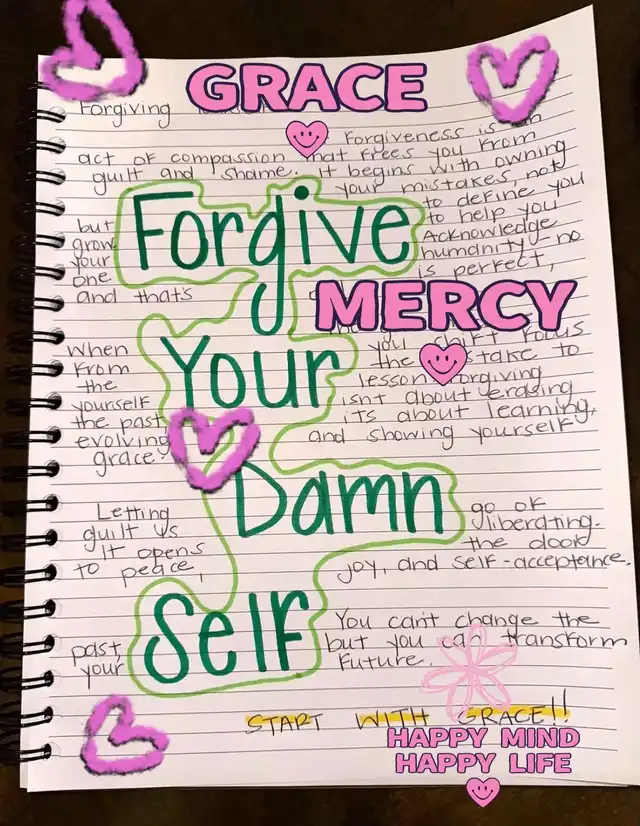 GRACE
Forgiving
Forgiveness is an
act of compassion that frees you from
guilt and shame. It begins with owning
your mistakes, not
to define you
but to help you
grow. Acknowledge
your humanity - no
one is perfect,
and that's
Forgive
MERCY
When you shift focus
from the stake to
the lesson Forgiving
yourself isnt about erasing
the past its about learning,
evolving and showing yourself
grace.
Your
Damn
Letting go of
guilt is liberating.
It opens the door
to peace, joy, and self-acceptance.
Self
You can't change the
past, but you can transform
your future.
START WITH GRACE!!
HAPPY MIND
HAPPY LIFE